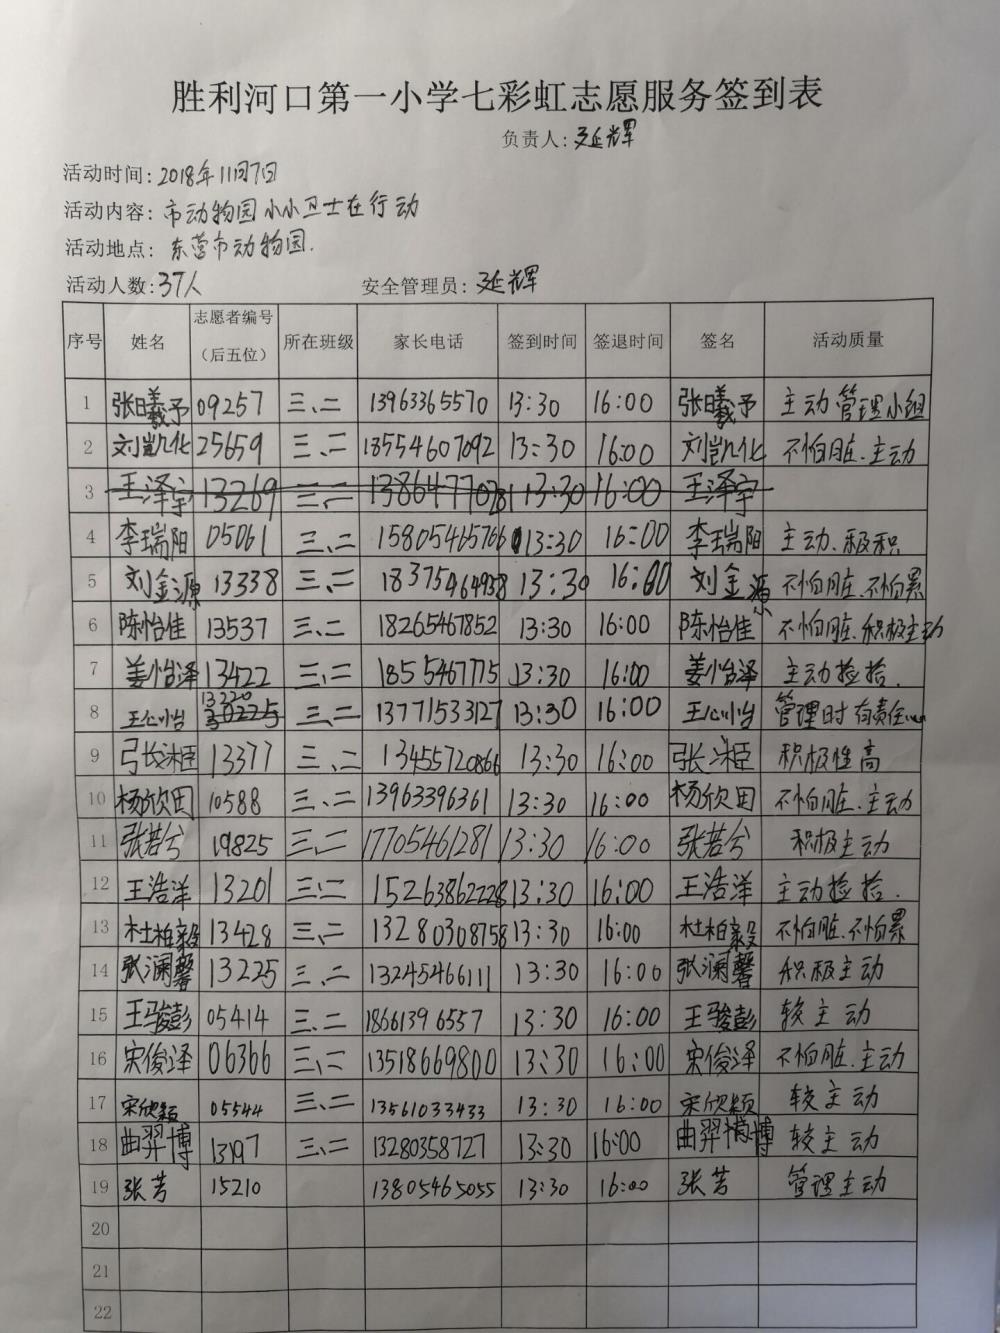 胜利河口第一小学七彩虹志愿服务签到表
负责人:延辉
活动时间:2018年11月7日
活动内容:市动物园小小卫士在行动
活动地点:东营市动物园.
活动人数:37人 安全管理员:延辉
序号 姓名 志愿者编号(后五位) 所在班级 家长电话 签到时间 签退时间 签名 活动质量
1 张曦予 09257 三、二 13963365570 13:30 16:00 张曦予 主动管理小组
2 刘凯化 25659 三、二 13554607092 13:30 16:00 刘凯化 不怕脏.主动
3 王泽宇 13269 三、二 13864770281 13:30 16:00 王泽宇
4 李瑞阳 05061 三、二 15805465766 13:30 16:00 李瑞阳 主动、积极
5 刘金源 13338 三、二 18375464938 13:30 16:00 刘金源 不怕脏.不怕累
6 陈怡佳 13537 三、二 18265467852 13:30 16:00 陈怡佳 不怕脏.积极主动
7 姜怡泽 13422 三、二 1855467775 13:30 16:00 姜怡泽 主动捡拾.
8 王心怡 13220 三、二 13771533127 13:30 16:00 王心怡 管理时有责任心
9 张沭臣 13377 三、二 13455720866 13:30 16:00 张沭臣 积极性高
10 杨欣田 10588 三、二 13963396361 13:30 16:00 杨欣田 不怕脏.主动
11 张若兮 19825 三、二 17705461281 13:30 16:00 张若兮 积极主动
12 王浩洋 13201 三、二 15263862228 13:30 16:00 王浩洋 主动捡拾.
13 杜柏毅 13428 三、二 13280308758 13:30 16:00 杜柏毅 不怕脏.不怕累
14 张澜馨 13225 三、二 13245466111 13:30 16:00 张澜馨 积极主动
15 王骏彭 05414 三、二 18661396557 13:30 16:00 王骏彭 较主动
16 宋俊泽 06366 三、二 13518669800 13:30 16:00 宋俊泽 不怕脏.主动
17 宋欣颖 05544 三、二 13561033433 13:30 16:00 宋欣颖 较主动
18 曲羿博 13197 三、二 13280358727 13:30 16:00 曲羿博 较主动
19 张芳 15210 13805465055 13:30 16:00 张芳 管理主动
20
21
22